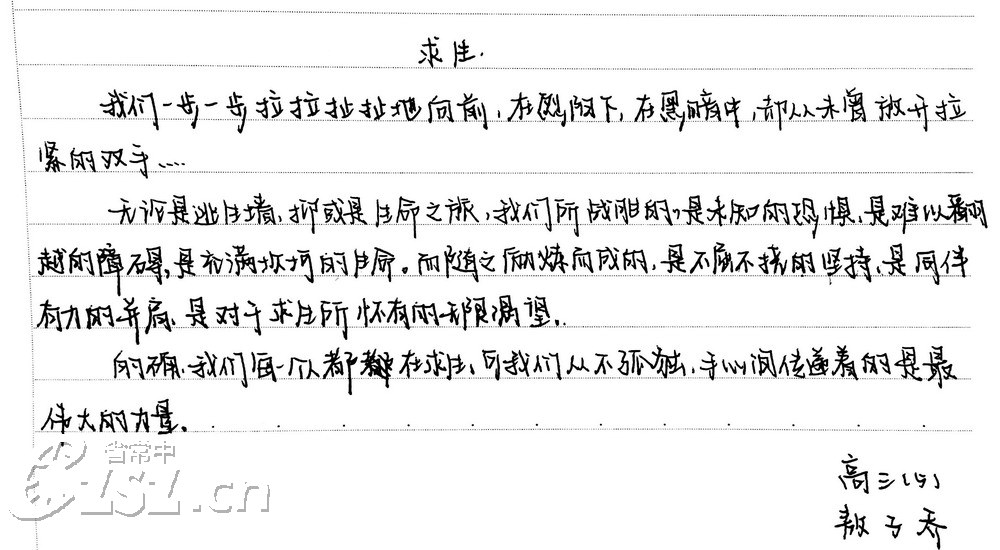 求生.
我们一步一步拉拉扯扯地向前，在烈阳下，在黑暗中，都从未曾放开拉
紧的双手....
无论是逃生墙，抑或是生命之旅，我们所战胜的，是未知的恐惧，是难以翻
越的障碍，是充满坎坷的生命。而随之历炼而成的，是不屈不挠的坚持，是同伴
有力的并肩，是对于求生所怀有的无限渴望。
的确，我们每一个人都在求生，可我们从不孤独，手心间传递着的是最
伟大的力量。
高三(5)
敖子乔
省常中
CZSZ.cn